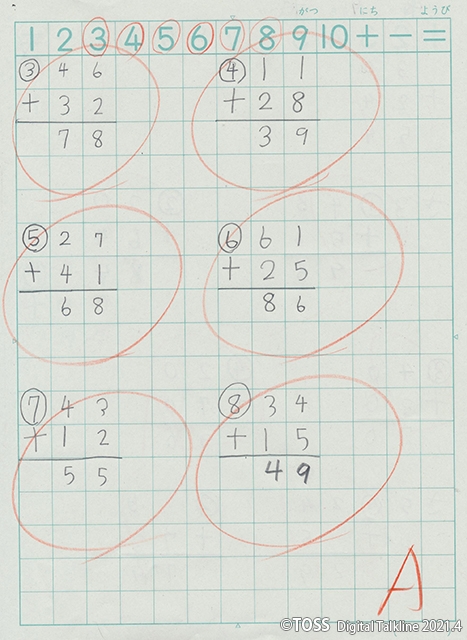 がつ にち ようび
1 2 3 4 5 6 7 8 9 10 + - =
③ 4 6 ④ 1 1
+ 3 2 + 2 8
7 8 3 9
⑤ 2 7 ⑥ 6 1
+ 4 1 + 2 5
6 8 8 6
⑦ 4 3 ⑧ 3 4
+ 1 2 + 1 5
5 5 4 9
A
©TOSS Digital Talkline 2021.4